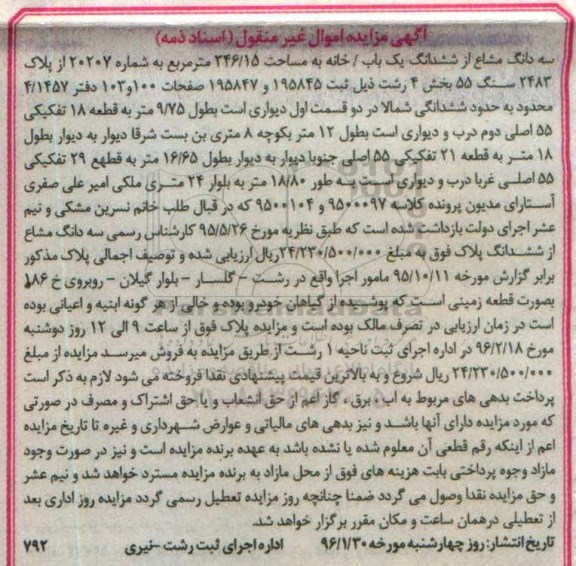 آگهی مزایده اموال غیر منقول (اسناد ذمه)
سه دانگ مشاع از ششدانگ یک باب / خانه به مساحت ۳۴۶/۱۵ مترمربع به شماره ۲۰۲۰۷ از پلاک
۲۴۸۳ سنگ ۵۵ بخش ۴ رشت ذیل ثبت ۱۹۵۸۴۵ و ۱۹۵۸۴۷ صفحات ۱۰۰و۱۰۳ دفتر ۴/۱۴۵۷
محدود به حدود ششدانگی شمالا در دو قسمت اول دیواری است بطول ۹/۷۵ متر به قطعه ۱۸ تفکیکی
۵۵ اصلی دوم درب و دیواری است بطول ۱۲ متر بکوچه ۸ متری بن بست شرقا دیوار به دیوار بطول
۱۸ متر به قطعه ۲۱ تفکیکی ۵۵ اصلی جنوبا دیوار به دیوار بطول ۱۶/۶۵ متر به قطهع ۲۹ تفکیکی
۵۵ اصلی غربا درب و دیواری است به طور ۱۸/۸۰ متر به بلوار ۲۴ متری ملکی امیر علی صفری
آستارای مدیون پرونده کلاسه ۹۵۰۰۰۹۷ و ۹۵۰۰۱۰۴ که در قبال طلب خانم نسرین مشکی و نیم
عشر اجرای دولت بازداشت شده است که طبق نظریه مورخ ۹۵/۵/۲۶ کارشناس رسمی سه دانگ مشاع
از ششدانگ پلاک فوق به مبلغ ۲۴/۲۳۰/۵۰۰/۰۰۰ریال ارزیابی شده و توصیف اجمالی پلاک مذکور
برابر گزارش مورخه ۹۵/۱۰/۱۱ مامور اجرا واقع در رشت – گلسار – بلوار گیلان – روبروی خ ۱۸۶
بصورت قطعه زمینی است که پوشیده از گیاهان خودرو بوده و خالی از هر گونه ابنیه و اعیانی بوده
است در زمان ارزیابی در تصرف مالک بوده است و مزایده پلاک فوق از ساعت ۹ الی ۱۲ روز دوشنبه
مورخ ۹۶/۲/۱۸ در اداره اجرای ثبت ناحیه ۱ رشت از طریق مزایده به فروش میرسد مزایده از مبلغ
۲۴/۲۳۰/۵۰۰/۰۰۰ ریال شروع و به بالاترین قیمت پیشنهادی نقدا فروخته می شود لازم به ذکر است
پرداخت بدهی های مربوط به اب، برق ، گاز اعم از حق انشعاب و یا حق اشتراک و مصرف در صورتی
که مورد مزایده دارای آنها باشد و نیز بدهی های مالیاتی و عوارض شهرداری و غیره تا تاریخ مزایده
اعم از اینکه رقم قطعی آن معلوم شده یا نشده باشد به عهده برنده مزایده است و نیز در صورت وجود
مازاد وجوه پرداختی بابت هزینه های فوق از محل مازاد به برنده مزایده مسترد خواهد شد و نیم عشر
و حق مزایده نقدا وصول می گردد ضمنا چنانچه روز مزایده تعطیل رسمی گردد مزایده روز اداری بعد
از تعطیلی درهمان ساعت و مکان مقرر برگزار خواهد شد.
تاریخ انتشار: روز چهارشنبه مورخه ۹۶/۱/۳۰ اداره اجرای ثبت رشت –نیری ۷۹۲